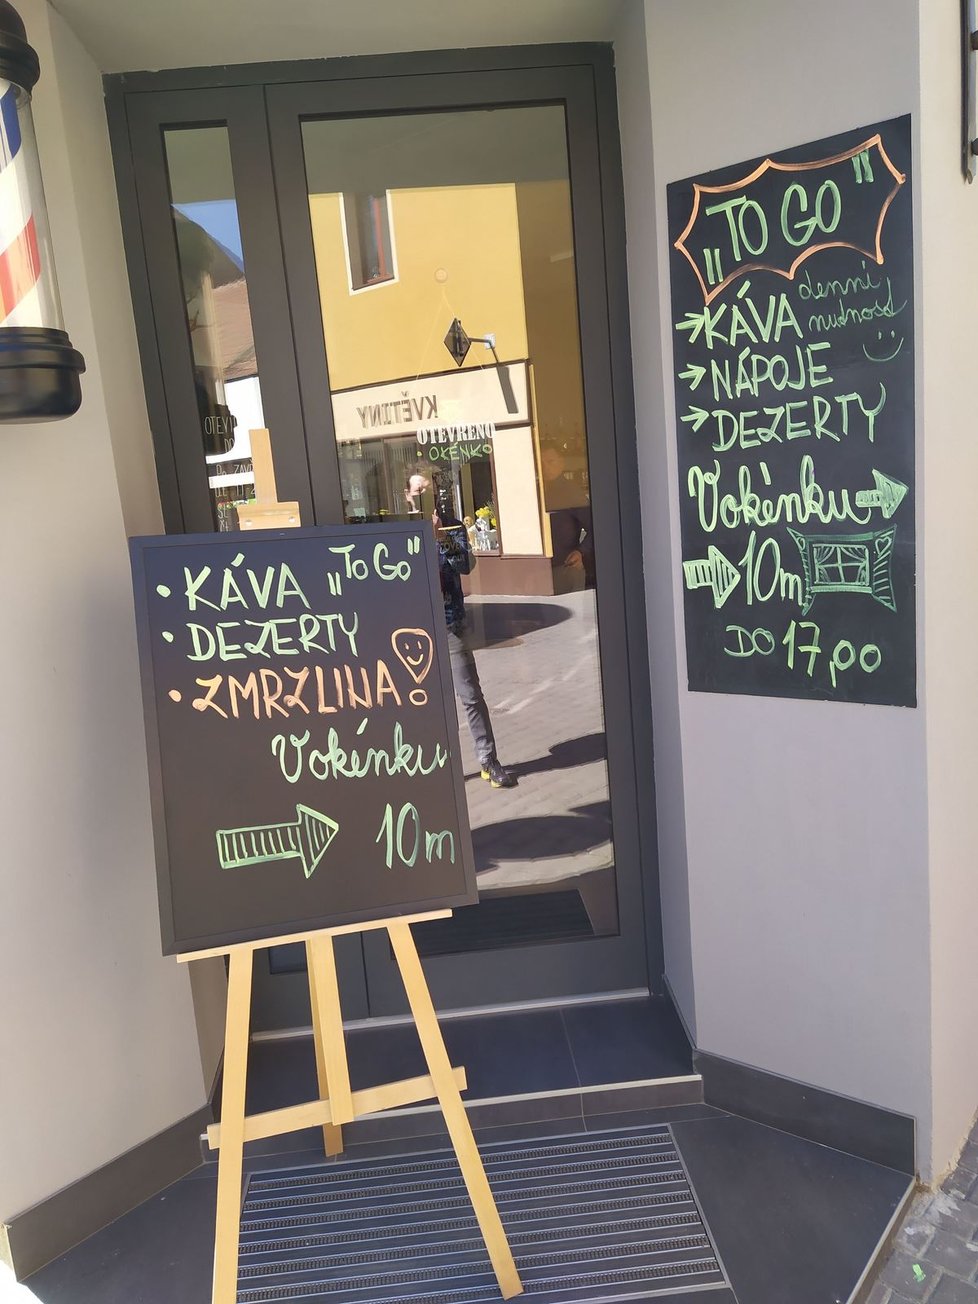 „TO GO"
→KÁVA denní nudnost
→NÁPOJE
→DEZERTY
Vokénku→
→10m
DO 17,00
KVĚTINY
OTEVŘENO
• OKÉNKO
• KÁVA „To Go"
• DEZERTY
• ZMRZLINA!
Vokénku
→ 10m